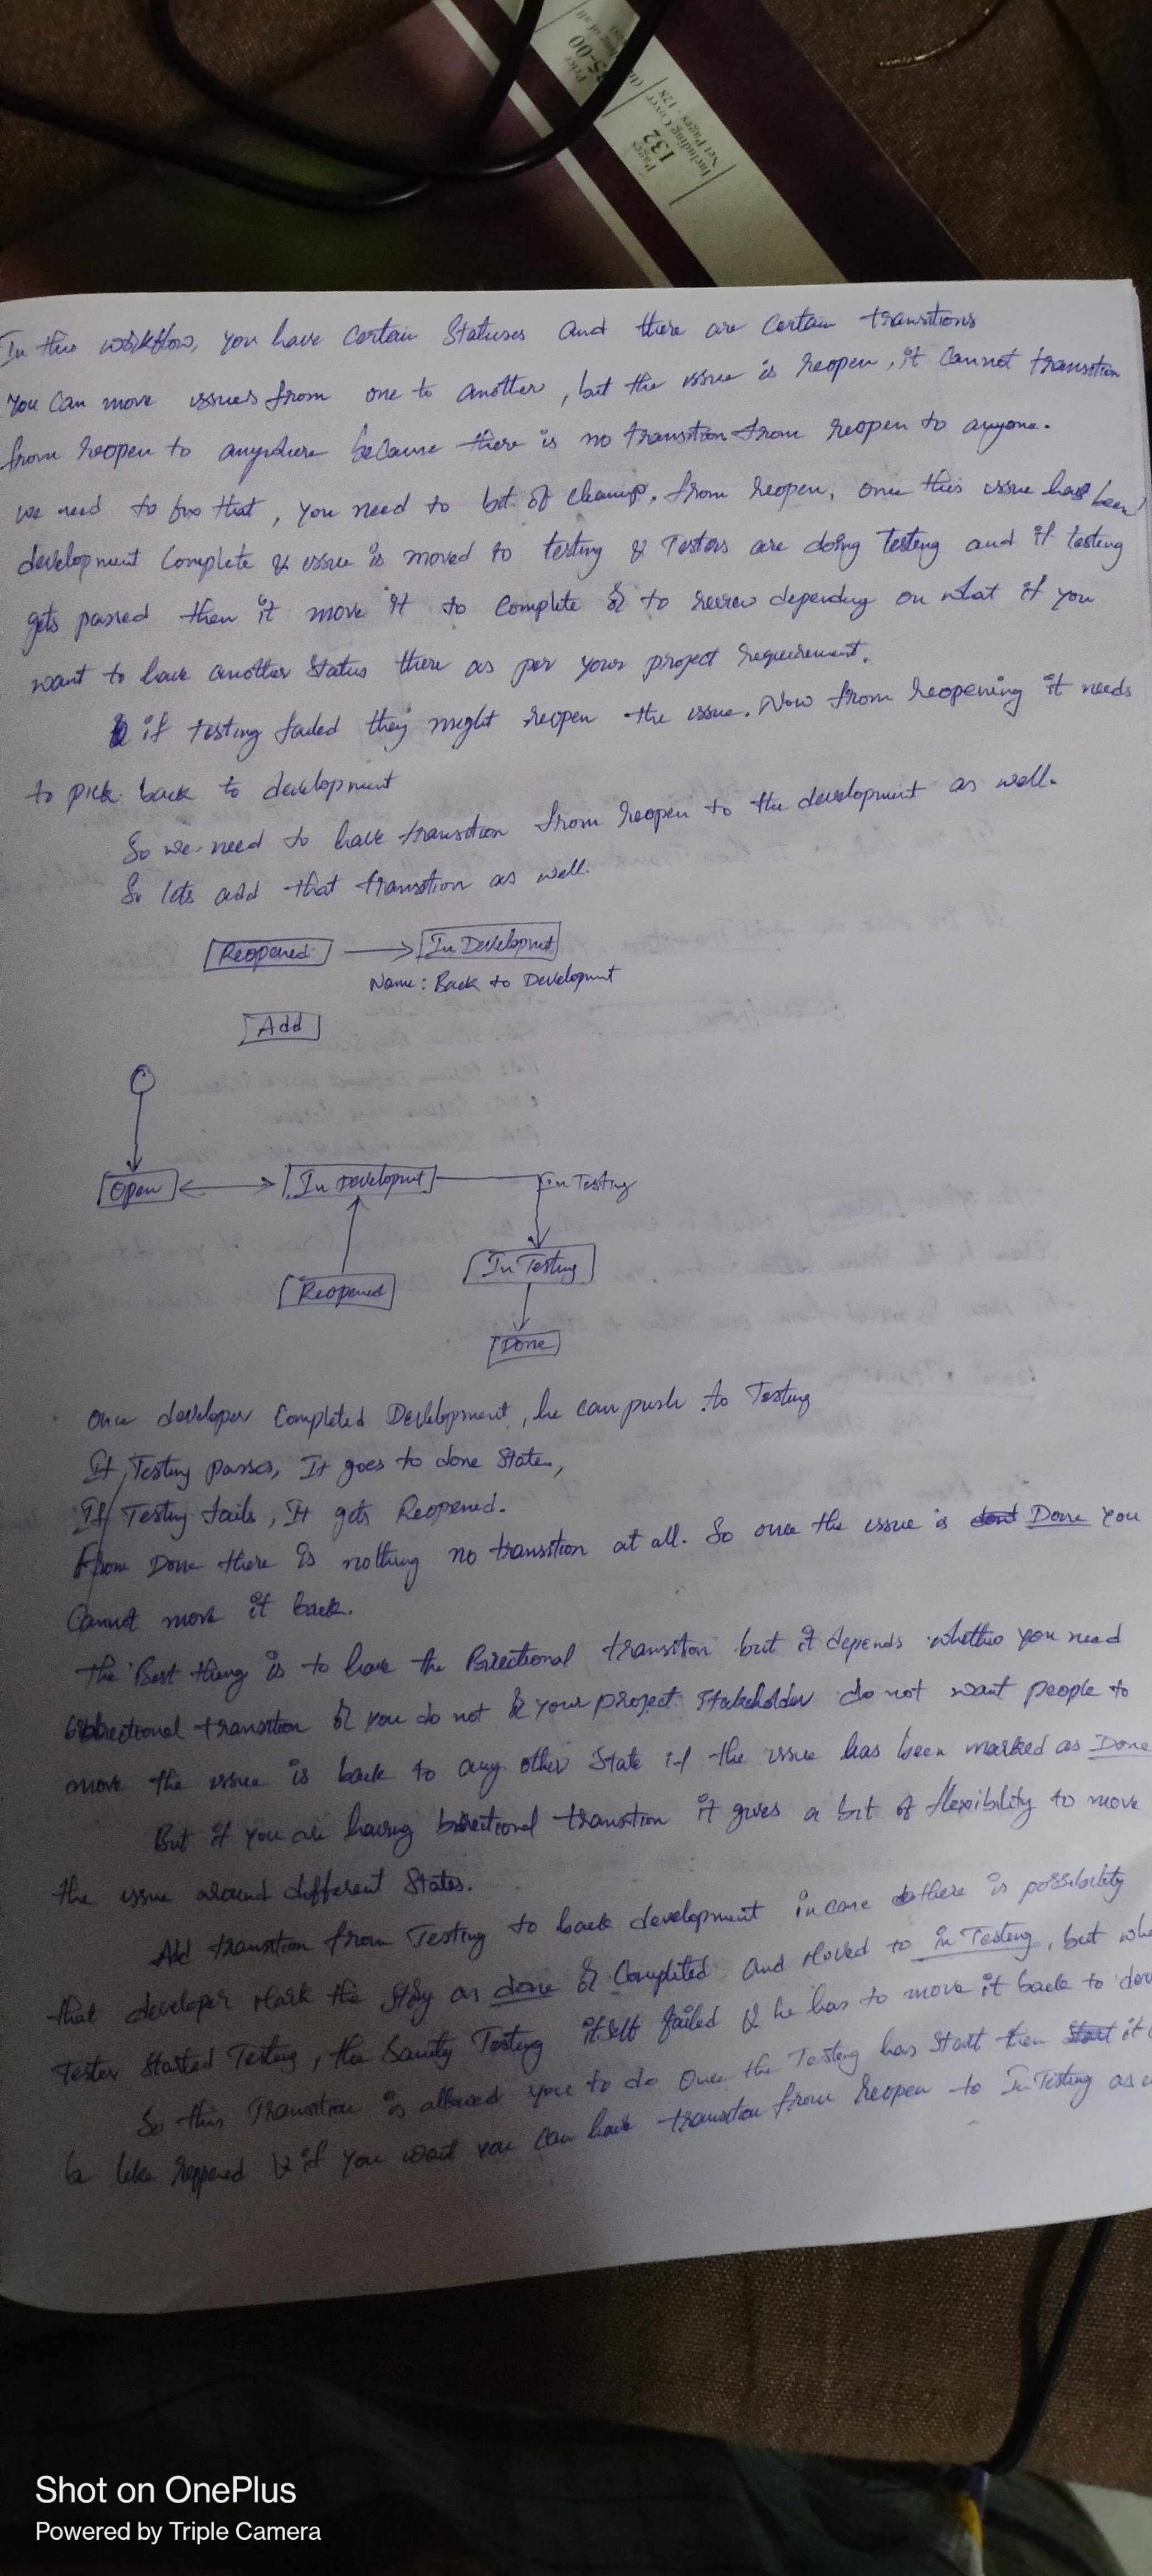 Price
35-00
Pages
132
Including Cover
Net Pages - 128
In this workflow, you have certain Statuses and there are certain transitions
You can move issues from one to another, but the issue is reopen, it cannot transition
from reopen to anywhere because there is no transition from reopen to anyone.
we need to fix that, you need to bit of cleanup. from reopen, once this issue has been
development Complete & issue is moved to testing & Testers are doing testing and if testing
gets passed then it move it to complete or to review depending on what if you
want to have another status there as per your project requirement.
& if testing failed they might reopen the issue. Now from reopening it needs
to pick back to development
So we need to have transition from reopen to the development as well.
So lets add that transition as well.
Reopened In Developmnt
Name: Back to Developmnt
Add
Open In Developmnt In Testing
Reopened In Testing
Done
Once developer Completed Development, he can push to Testing
If Testing passes, It goes to done State,
If Testing fails, It gets Reopened.
From Done there is nothing no transition at all. So once the issue is Done You
Cannot move it back.
The Best thing is to have the Birectional transition but it depends whether you need
transition or you do not & your project Stakeholder do not want people to
move the issue is back to any other State if the issue has been marked as Done
But if you are having transition it gives a bit of flexibility to move
the issue around different States.
Add transition from Testing to back development incase there is possibility
that developer Mark the Story as done or Completed and Moved to In Testing, but whe
Tester Started Testing, the Sanity Testing itself failed & he has to move it back to dev
So this Transition is allowed you to do Once the Testing has Start then it
be like & if you want you can have transition from Reopen to In Testing as
Shot on OnePlus
Powered by Triple Camera